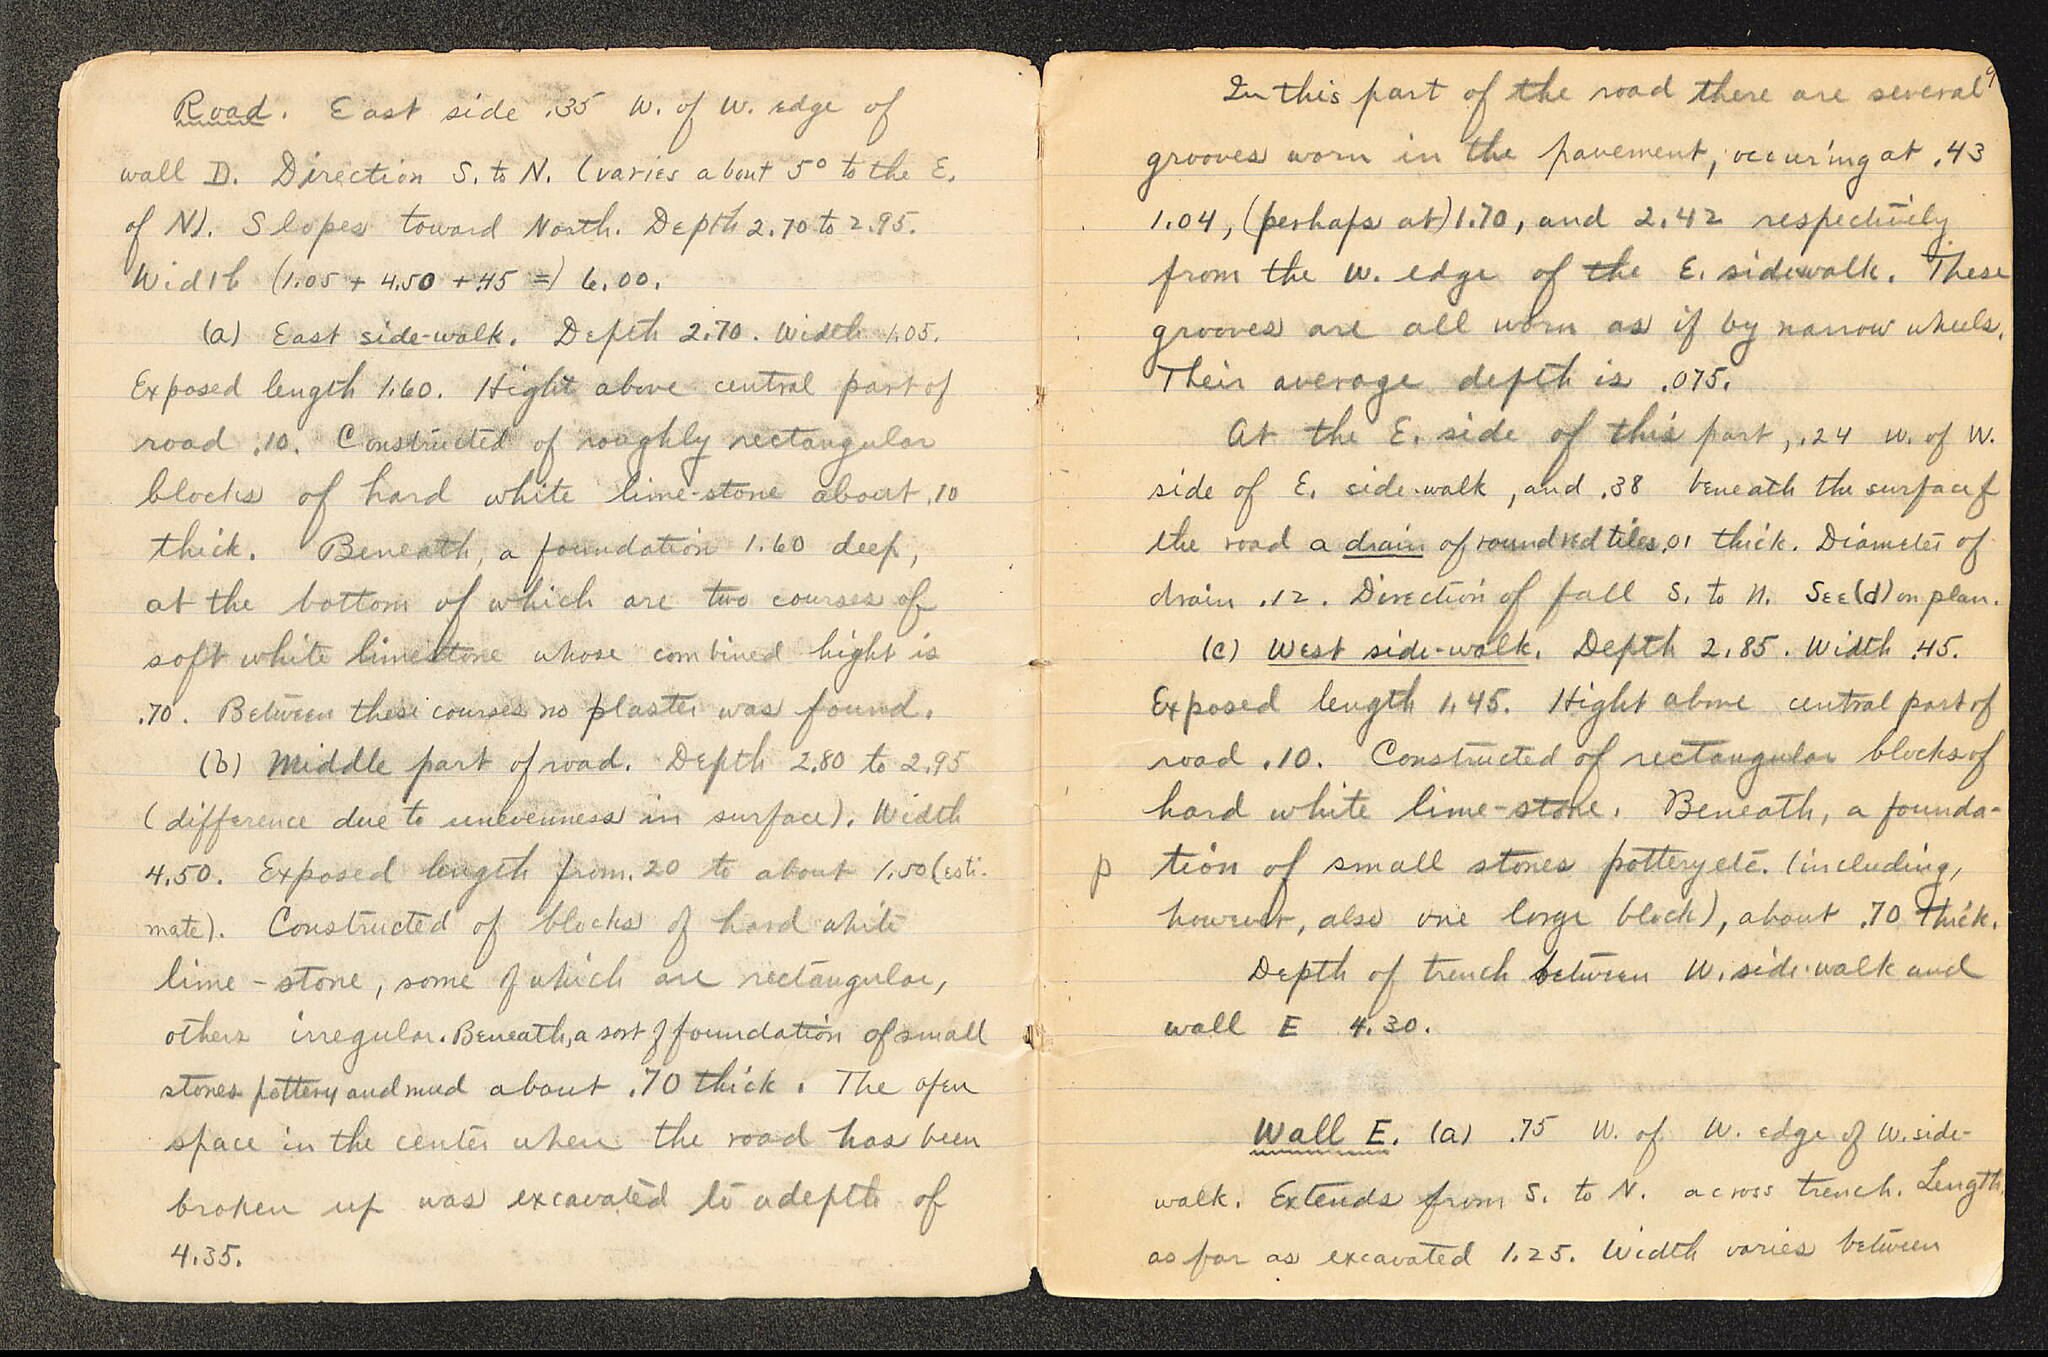 Road. East side .35 W. of W. edge of
wall D. Direction S. to N. (varies about 5° to the E.
of N). Slopes toward North. Depth 2.70 to 2.95.
Width (1.05 + 4.50 + .45 =) 6.00.
(a) East side-walk. Depth 2.70. Width 1.05.
Exposed length 1.60. Hight above central part of
road .10. Constructed of roughly rectangular
blocks of hard white lime-stone about .10
thick. Beneath, a foundation 1.60 deep,
at the bottom of which are two courses of
soft white limestone whose combined hight is
.70. Between these courses no plaster was found.
(b) Middle part of road. Depth 2.80 to 2.95
(difference due to unevenness in surface). Width
4.50. Exposed length from .20 to about 1.50 (esti-
mate). Constructed of blocks of hard white
lime-stone, some of which are rectangular,
others irregular. Beneath, a sort of foundation of small
stones pottery and mud about .70 thick. The open
space in the center where the road has been
broken up was excavated to a depth of
4.35.
9
In this part of the road there are several
grooves worn in the pavement, occuring at .43
1.04, (perhaps at) 1.70, and 2.42 respectively
from the W. edge of the E. sidewalk. These
grooves are all worn as if by narrow wheels.
Their average depth is .075.
At the E. side of this part, .24 W. of W.
side of E. side-walk, and .38 beneath the surface of
the road a drain of round red tiles .01 thick. Diameter of
drain .12. Direction of fall S. to N. See (d) on plan.
(c) West side-walk. Depth 2.85. Width .45.
Exposed length 1.45. Hight above central part of
road .10. Constructed of rectangular blocks of
hard white lime-stone. Beneath, a founda-
p tion of small stones pottery etc. (including,
however, also one large block), about .70 thick.
Depth of trench between W. side-walk and
wall E 4.30.
Wall E. (a) .75 W. of W. edge of W. side-
walk. Extends from S. to N. across trench. Length,
as far as excavated 1.25. Width varies between